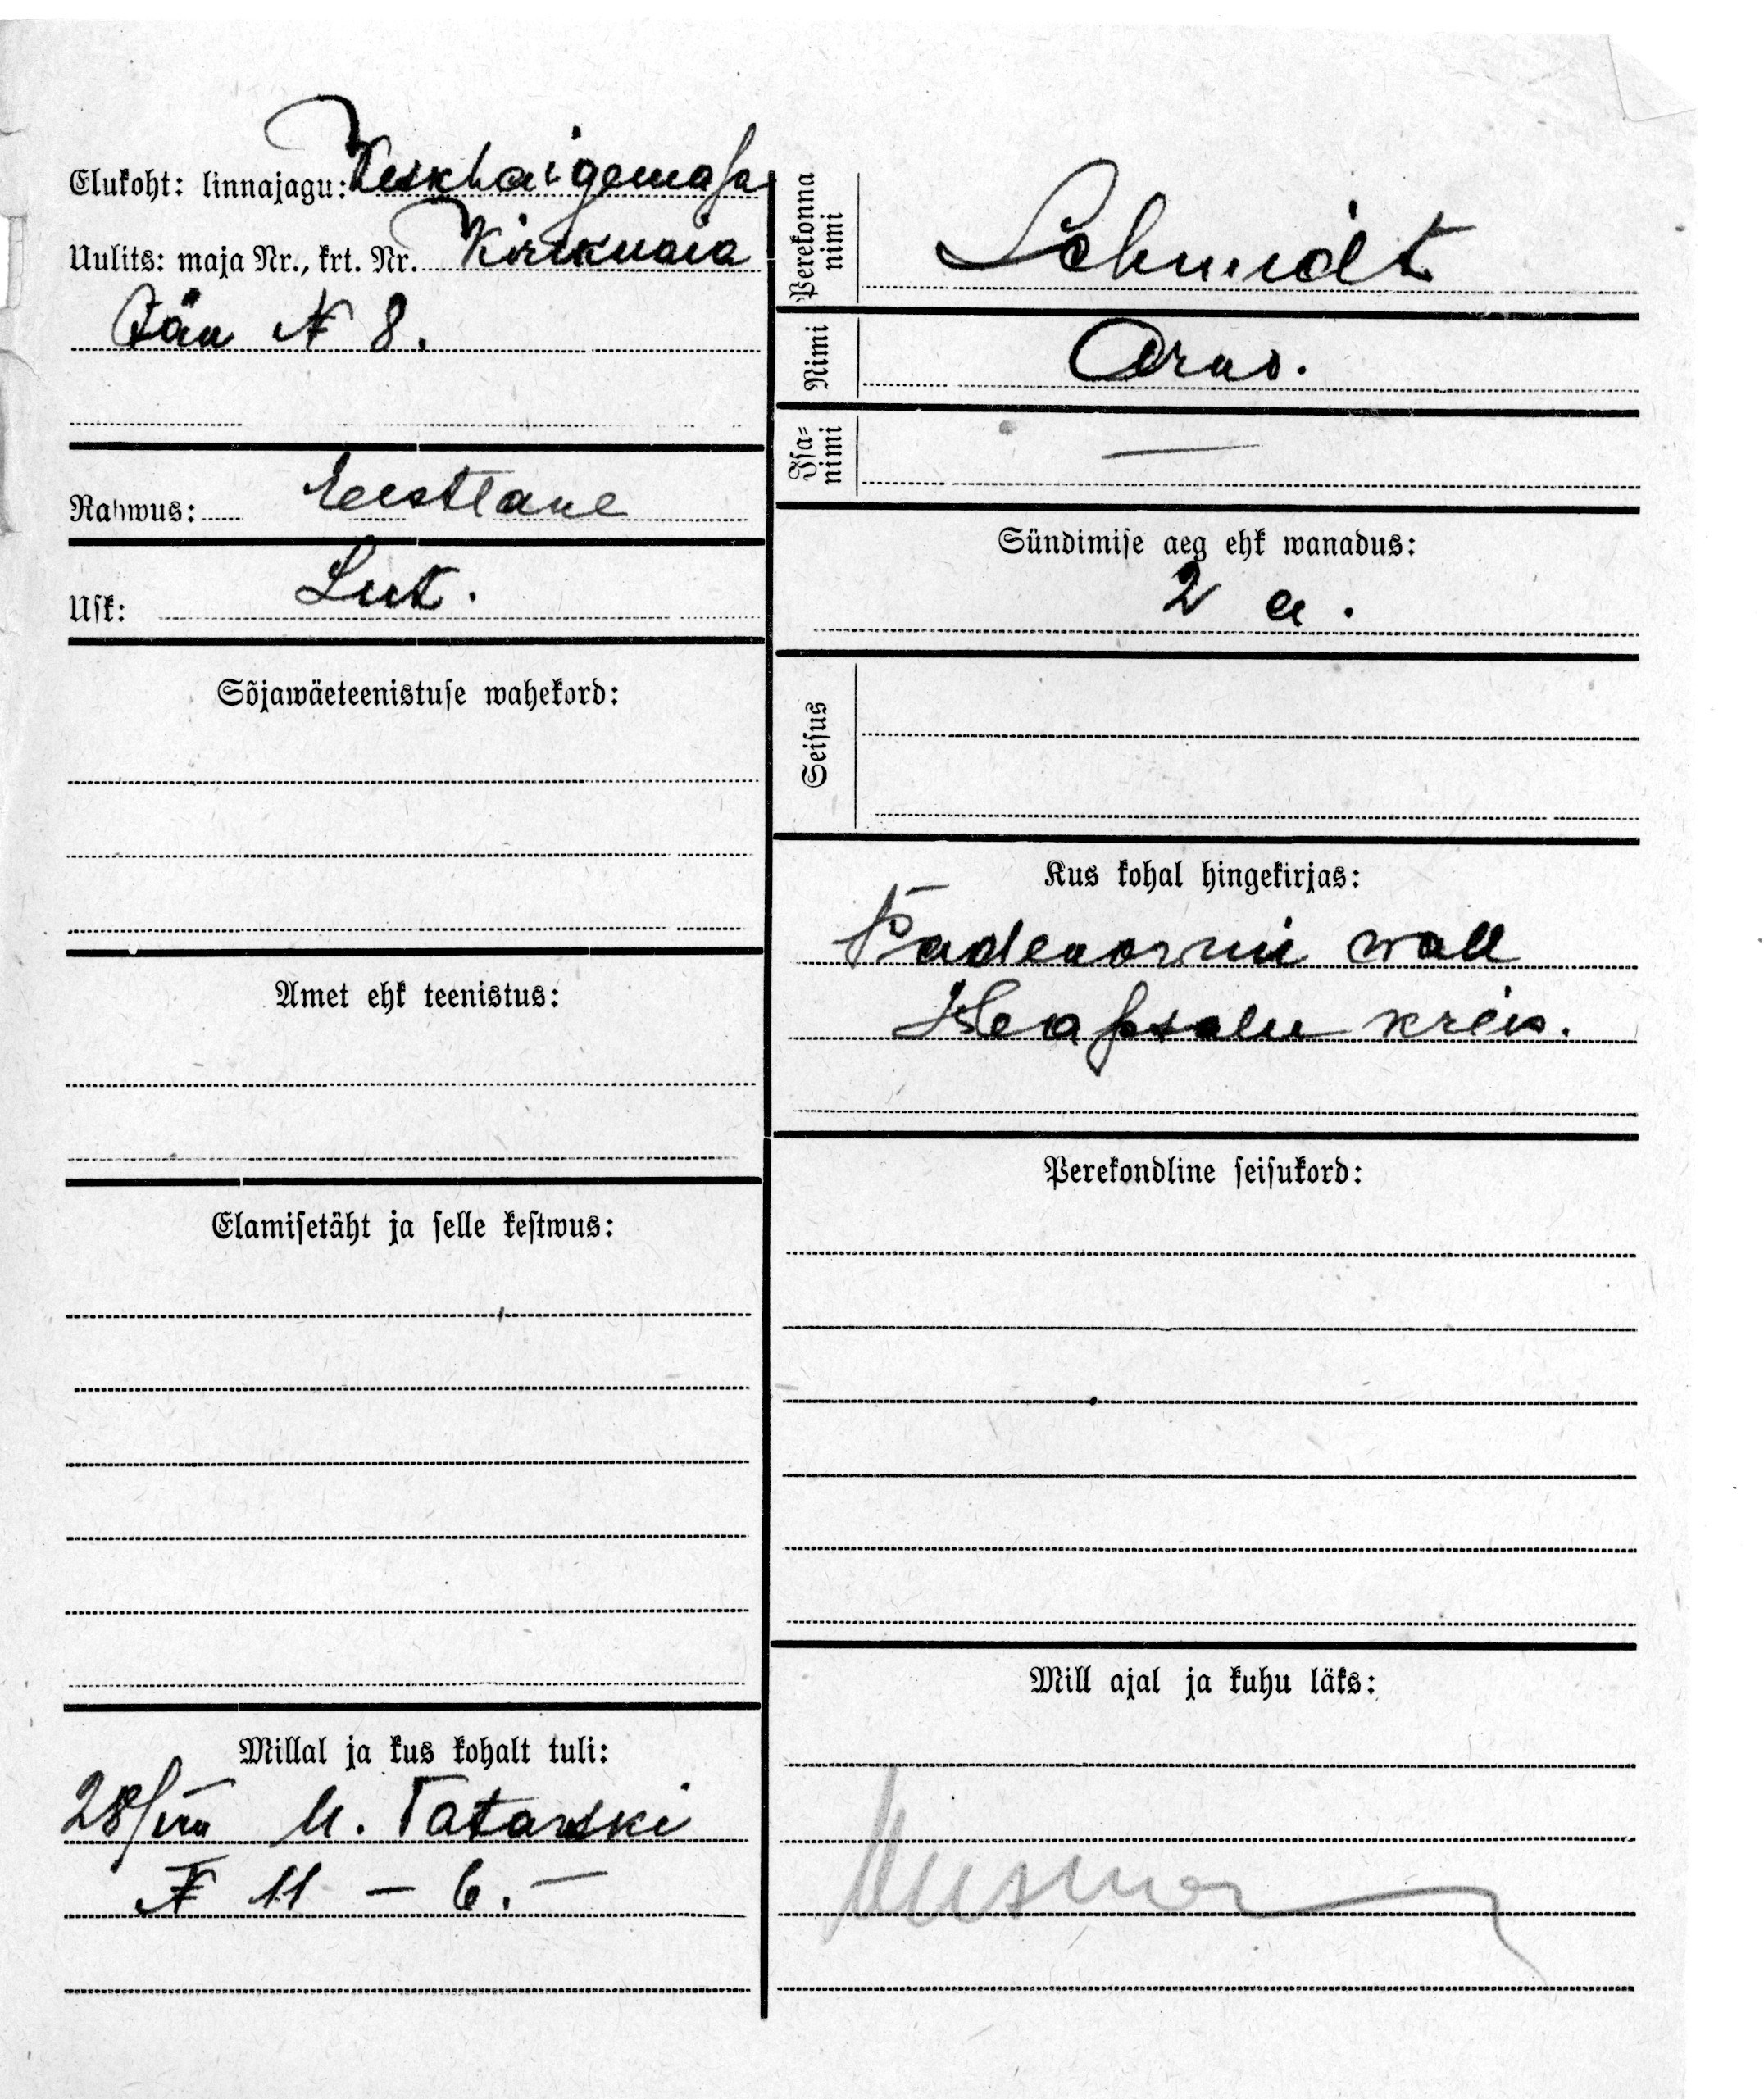 Elukoht: linnajagu: Keskhaigemaja
Uulits: maja Nr., krt. Nr. Kirikuaia
tän № 8.
Rahwus: Eestlane
Usk: Lut.
Sõjawäeteenistuse wahekord:
Amet ehk teenistus:
Elamisetäht ja selle kestwus:
Millal ja kus kohalt tuli:
28/VIII U. Tatarski
№ 11 – 6. –
Perekonna
nimi
Schmidt
Nimi
Arno.
Isa-
nimi
—
Sündimise aeg ehk wanadus:
2 a.
Seisus
Kus kohal hingekirjas:
Padenormi wall
Heapsalu kreis.
Perekondline seisukord:
Mill ajal ja kuhu läks: